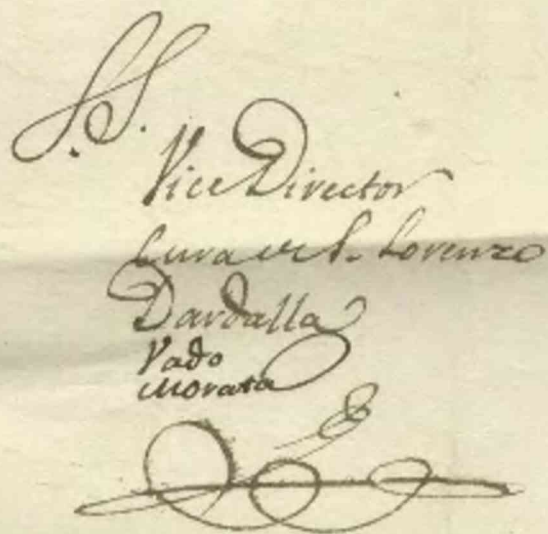 S.S.
Vice Director
Cura de S. Lorenzo
Dardalla
Vado
Morata